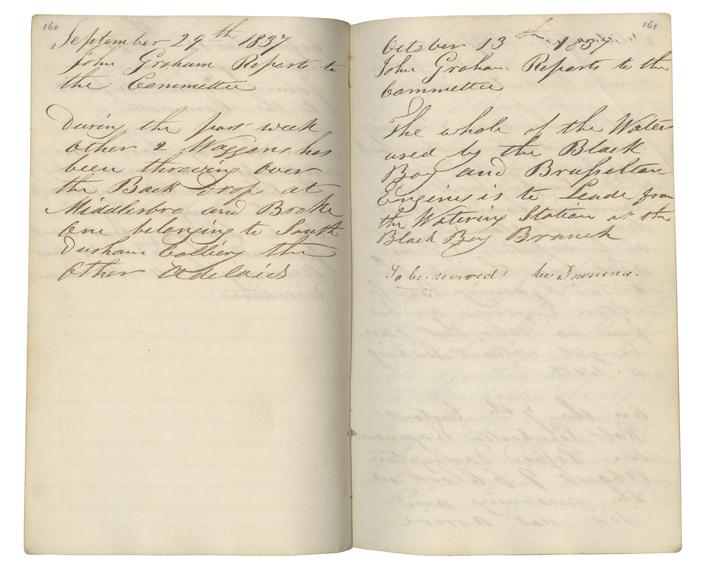 160
September 29th 1837
John Graham Reports to
the Committee
During the past week
other 2 Waggons has
been throwing over
the Back Drops at
Middlesbro and Broke
One belonging to South
Durham Colliery the
Other Adelaids
161
October 13th 1837
John Graham Reports to the
Committee
The whole of the Water
used by the Black
Boy and Brusselton
Engines is to Leade from
the Watering Station at the
Black Boy Branch
To be